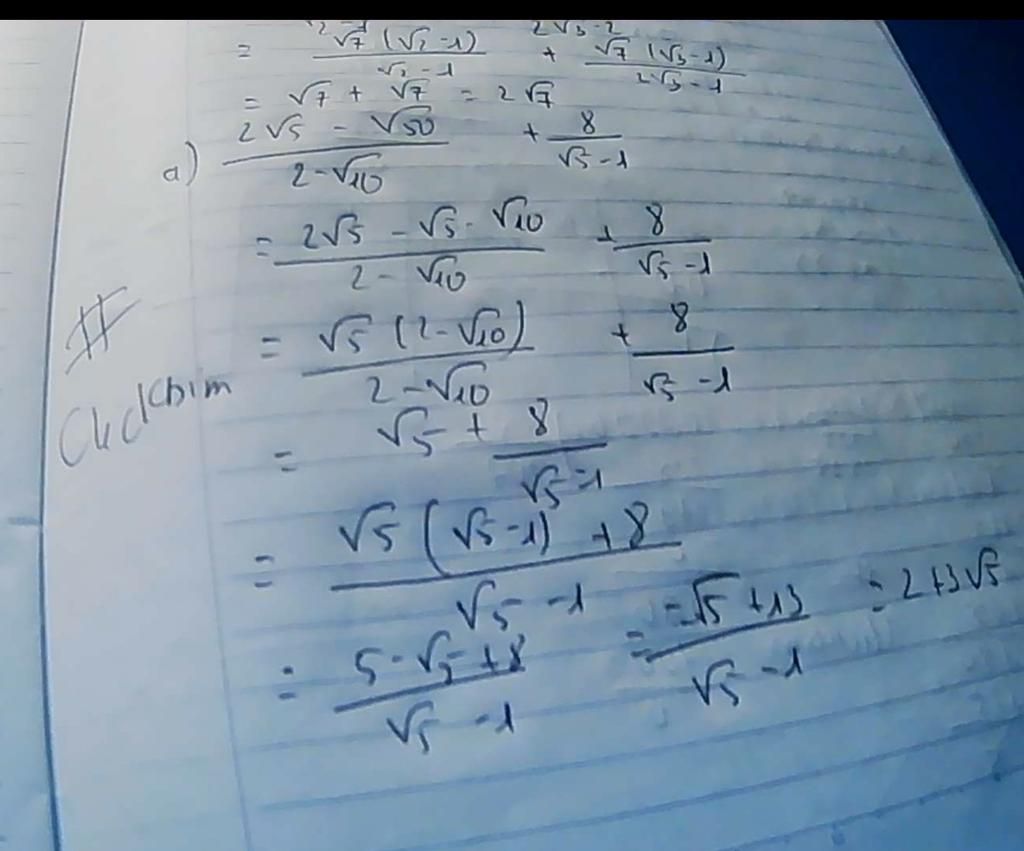 = √7 (√2 - 1) / √2 - 1 + √7 (√3 - 1) / 2√3 - 1
= √7 + √7 = 2√7
a) 2√5 - √50 / 2 - √10 + 8 / √5 - 1
= 2√5 - √5 · √10 / 2 - √10 + 8 / √5 - 1
= √5 (2 - √10) / 2 - √10 + 8 / √5 - 1
= √5 + 8 / √5 - 1
= √5 (√5 - 1) + 8 / √5 - 1
= 5 - √5 + 8 / √5 - 1 = -√5 + 13 / √5 - 1 = 2 + 3√5